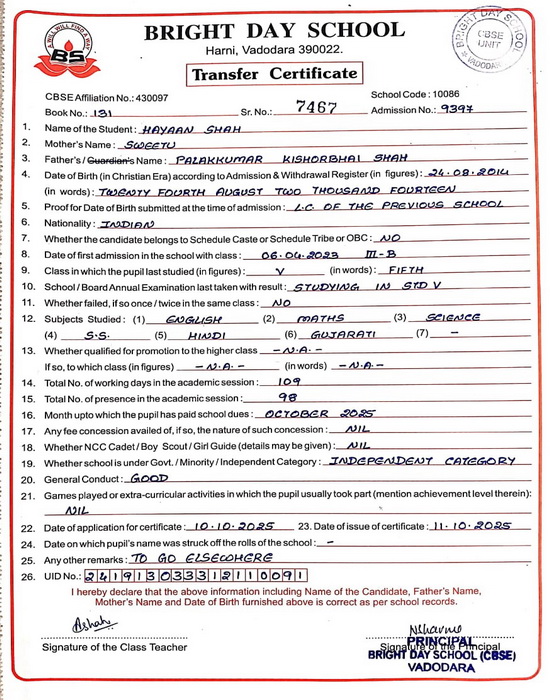 A WILL WILL FIND A WAY
BS
BRIGHT DAY SCHOOL
Harni, Vadodara 390022.
BRIGHT DAY SCHOOL
CBSE
UNIT
VADODARA
Transfer Certificate
CBSE Affiliation No.: 430097 School Code : 10086
Book No.: 131 Sr. No.: 7467 Admission No.: 9397
1. Name of the Student : HAYAAN SHAH
2. Mother's Name : SWEETU
3. Father's / Guardian's Name : PALAKKUMAR KISHORBHAI SHAH
4. Date of Birth (in Christian Era) according to Admission & Withdrawal Register (in figures) : 24.08.2014
(in words) : TWENTY FOURTH AUGUST TWO THOUSAND FOURTEEN
5. Proof for Date of Birth submitted at the time of admission : L.C. OF THE PREVIOUS SCHOOL
6. Nationality : INDIAN
7. Whether the candidate belongs to Schedule Caste or Schedule Tribe or OBC : NO
8. Date of first admission in the school with class : 06.04.2023 III-B
9. Class in which the pupil last studied (in figures) : V (in words) : FIFTH
10. School / Board Annual Examination last taken with result : STUDYING IN STD V
11. Whether failed, if so once / twice in the same class : NO
12. Subjects Studied : (1) ENGLISH (2) MATHS (3) SCIENCE
(4) S.S. (5) HINDI (6) GUJARATI (7) –
13. Whether qualified for promotion to the higher class – N.A. –
If so, to which class (in figures) – N.A. – (in words) – N.A. –
14. Total No. of working days in the academic session : 109
15. Total No. of presence in the academic session : 98
16. Month upto which the pupil has paid school dues : OCTOBER 2025
17. Any fee concession availed of, if so, the nature of such concession : NIL
18. Whether NCC Cadet / Boy Scout / Girl Guide (details may be given) : NIL
19. Whether school is under Govt. / Minority / Independent Category : INDEPENDENT CATEGORY
20. General Conduct : GOOD
21. Games played or extra-curricular activities in which the pupil usually took part (mention achievement level therein):
NIL
22. Date of application for certificate : 10.10.2025 23. Date of issue of certificate : 11.10.2025
24. Date on which pupil's name was struck off the rolls of the school : –
25. Any other remarks : TO GO ELSEWHERE
26. UID No.: 241913033312110091
I hereby declare that the above information including Name of the Candidate, Father's Name,
Mother's Name and Date of Birth furnished above is correct as per school records.
Signature of the Class Teacher
Signature of the Principal
PRINCIPAL
BRIGHT DAY SCHOOL (CBSE)
VADODARA